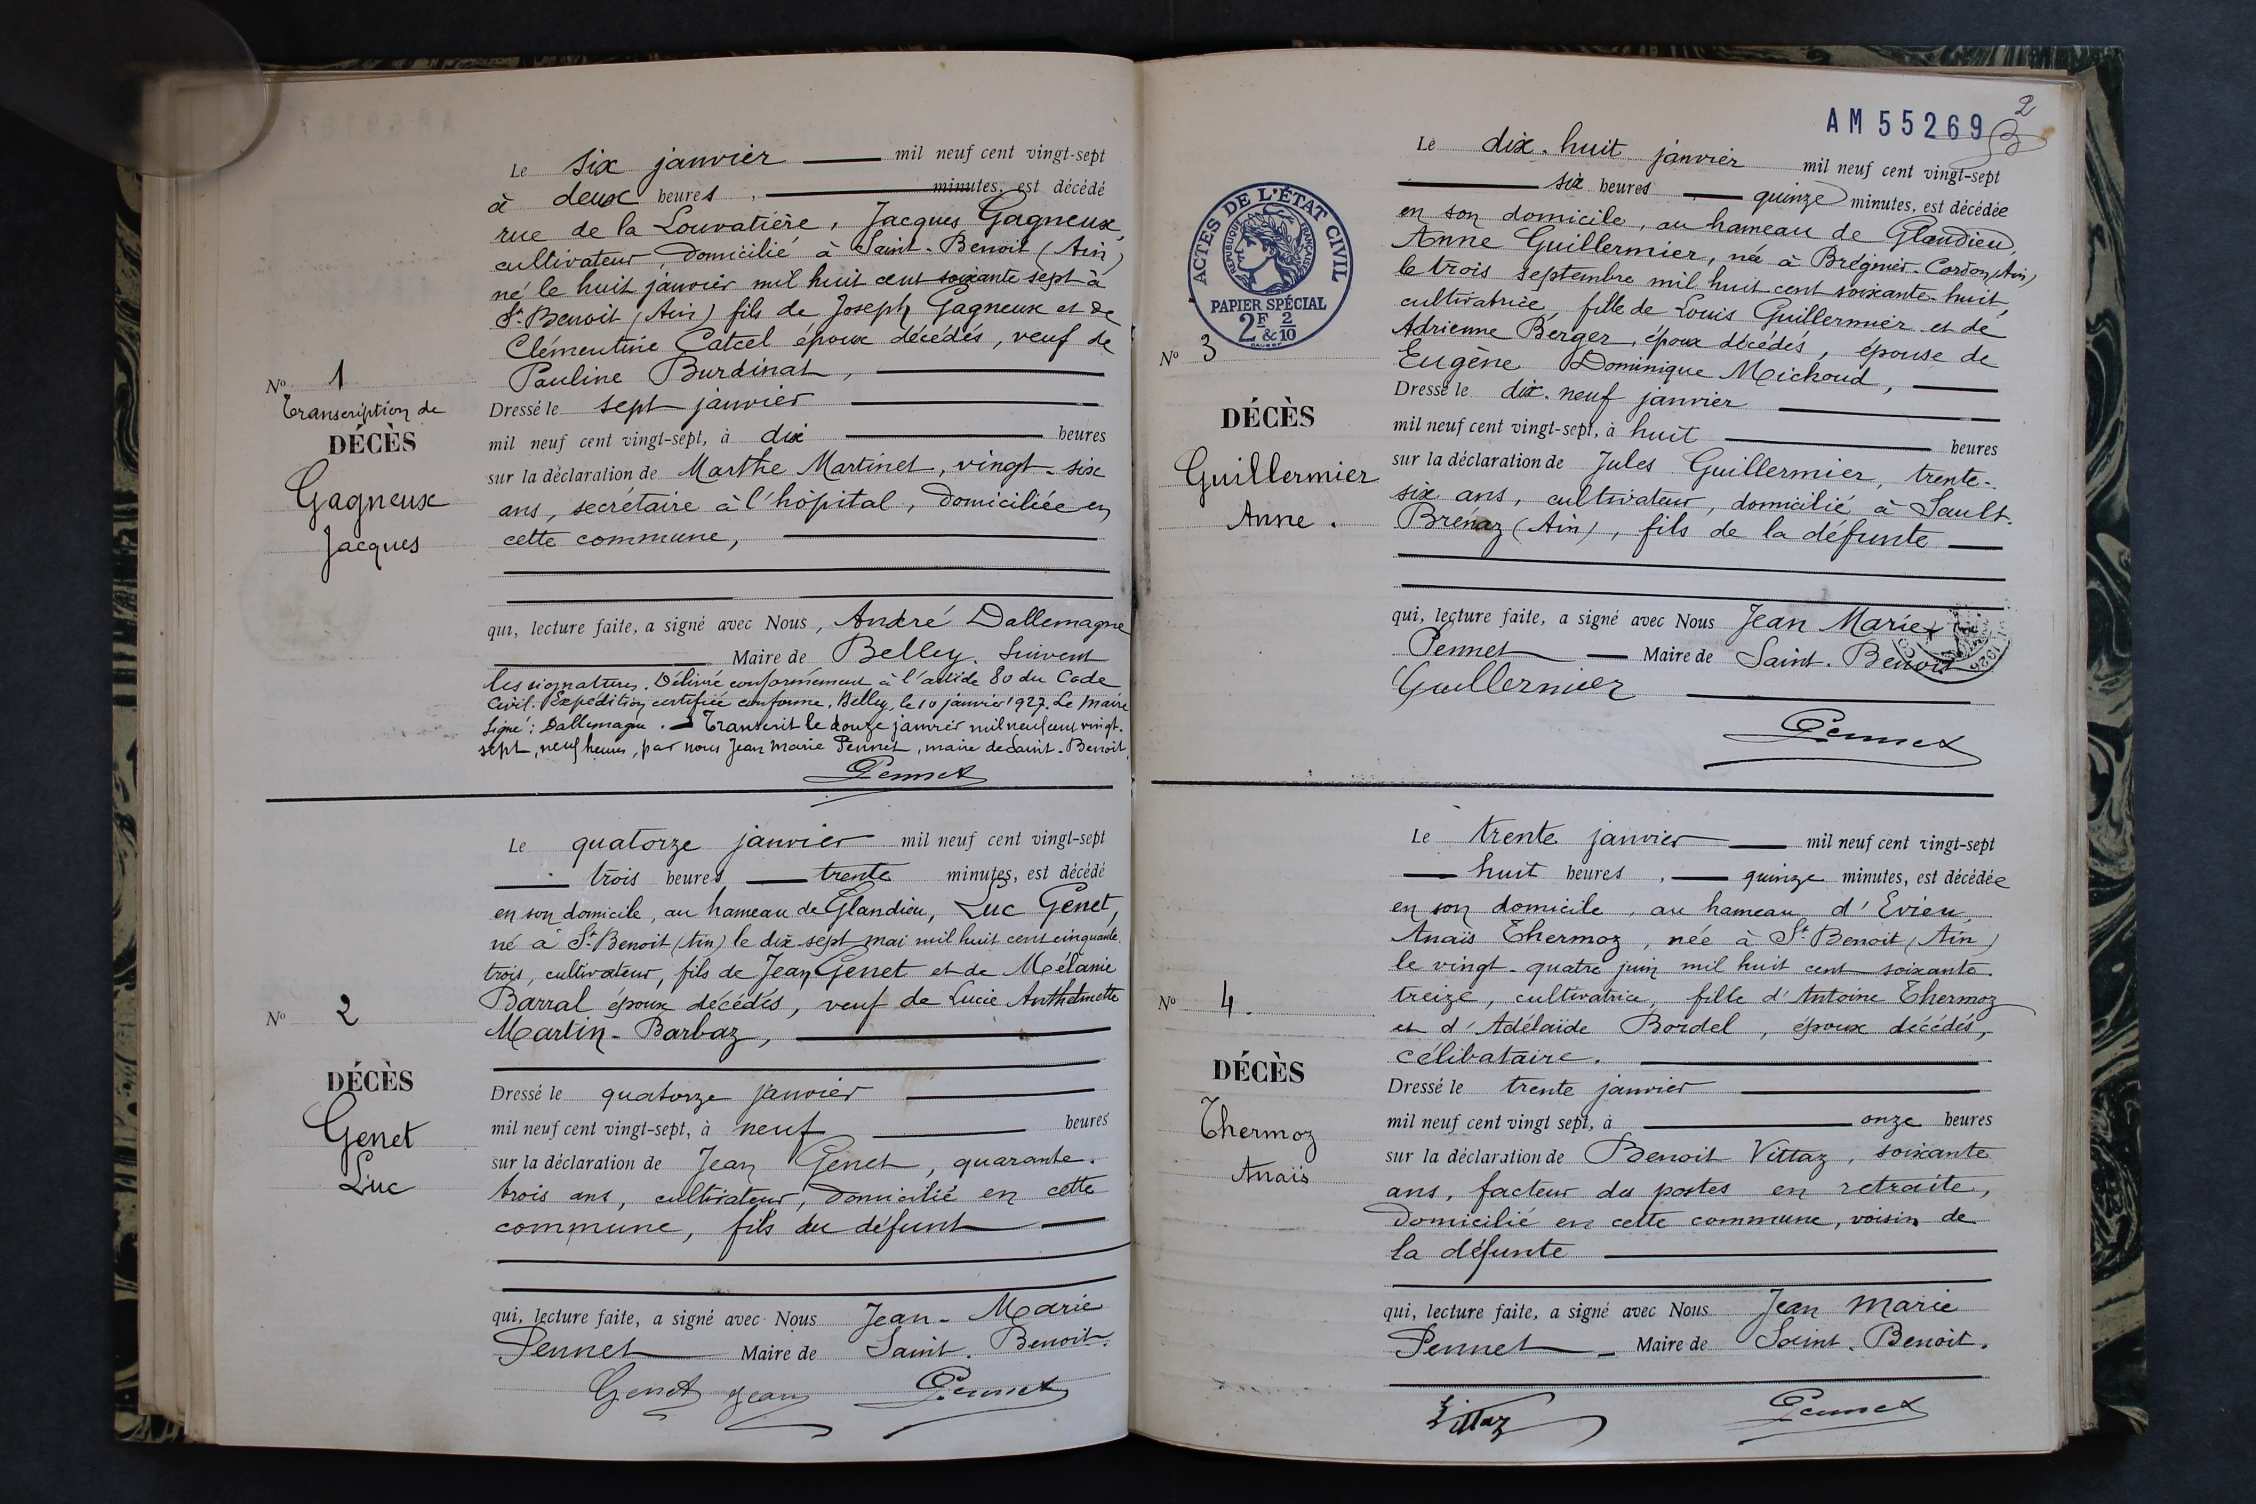 Le six janvier mil neuf cent vingt-sept
à deux heures, minutes, est décédé
rue de la Louvatière, Jacques Gagneux,
cultivateur, domicilié à Saint-Benoit (Ain)
né le huit janvier mil huit cent soixante sept à
St Benoit (Ain) fils de Joseph Gagneux et de
Clémentine Catcel époux décédés, veuf de
Pauline Burdinat,
No 1
Transcription de
DÉCÈS
Gagneux
Jacques
Dressé le sept janvier
mil neuf cent vingt-sept, à dix heures
sur la déclaration de Marthe Martinet, vingt-six
ans, secrétaire à l'hôpital, domiciliée en
cette commune,
qui, lecture faite, a signé avec Nous, André Dallemagne
Maire de Belley. Suivent
les signatures. Délivré conformément à l'article 80 du Code
Civil. Expédition certifiée conforme. Belley, le 10 janvier 1927. Le Maire
Signé: Dallemagne. Transcrit le douze janvier mil neuf cent vingt-
sept, neuf heures, par nous Jean Marie Pennet, maire de Saint-Benoit,
Pennet
Le quatorze janvier mil neuf cent vingt-sept
trois heures trente minutes, est décédé
en son domicile, au hameau de Glandieu, Luc Genet,
né à St Benoit (Ain) le dix-sept mai mil huit cent cinquante
trois, cultivateur, fils de Jean Genet et de Mélanie
Barral époux décédés, veuf de Lucie Anthelmette
Martin-Barbaz,
No 2
DÉCÈS
Genet
Luc
Dressé le quatorze janvier
mil neuf cent vingt-sept, à neuf heures
sur la déclaration de Jean Genet, quarante-
trois ans, cultivateur, domicilié en cette
commune, fils du défunt
qui, lecture faite, a signé avec Nous Jean-Marie
Pennet Maire de Saint-Benoit.
Genet Jean Pennet
AM55269
2
ACTES DE L'ÉTAT CIVIL
RÉPUBLIQUE FRANÇAISE
PAPIER SPÉCIAL
2F & 2/10
Le dix-huit janvier mil neuf cent vingt-sept
six heures quinze minutes, est décédée
en son domicile, au hameau de Glandieu,
Anne Guillermier, née à Brégnier-Cordon (Ain)
le trois septembre mil huit cent soixante-huit,
cultivatrice, fille de Louis Guillermier et de
Adrienne Berger, époux décédés, épouse de
Eugène Dominique Michoud,
No 3
DÉCÈS
Guillermier
Anne.
Dressé le dix-neuf janvier
mil neuf cent vingt-sept, à huit heures
sur la déclaration de Jules Guillermier, trente-
six ans, cultivateur, domicilié à Sault-
Brénaz (Ain), fils de la défunte
qui, lecture faite, a signé avec Nous Jean Marie
Pennet Maire de Saint-Benoit
Guillermier
Pennet
Le trente janvier mil neuf cent vingt-sept
huit heures, quinze minutes, est décédée
en son domicile, au hameau d'Evieu,
Anaïs Thermoz, née à St Benoit (Ain)
le vingt-quatre juin mil huit cent soixante-
treize, cultivatrice, fille d'Antoine Thermoz
et d'Adélaïde Bordel, époux décédés,
célibataire.
No 4.
DÉCÈS
Thermoz
Anaïs
Dressé le trente janvier
mil neuf cent vingt sept, à onze heures
sur la déclaration de Benoit Vittaz, soixante
ans, facteur des postes en retraite,
domicilié en cette commune, voisin de
la défunte
qui, lecture faite, a signé avec Nous Jean Marie
Pennet Maire de Saint-Benoit.
Vittaz Pennet